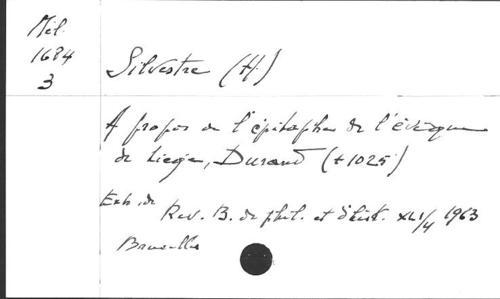 Mél.
1684
3
Silvestre (H.)
A propos de l'épitaphe de l'évêque
de Liège, Durand (+1025)
Extr. de
Rev. B. de phil. et d'hist. XLI/4 1963
Bruxelles